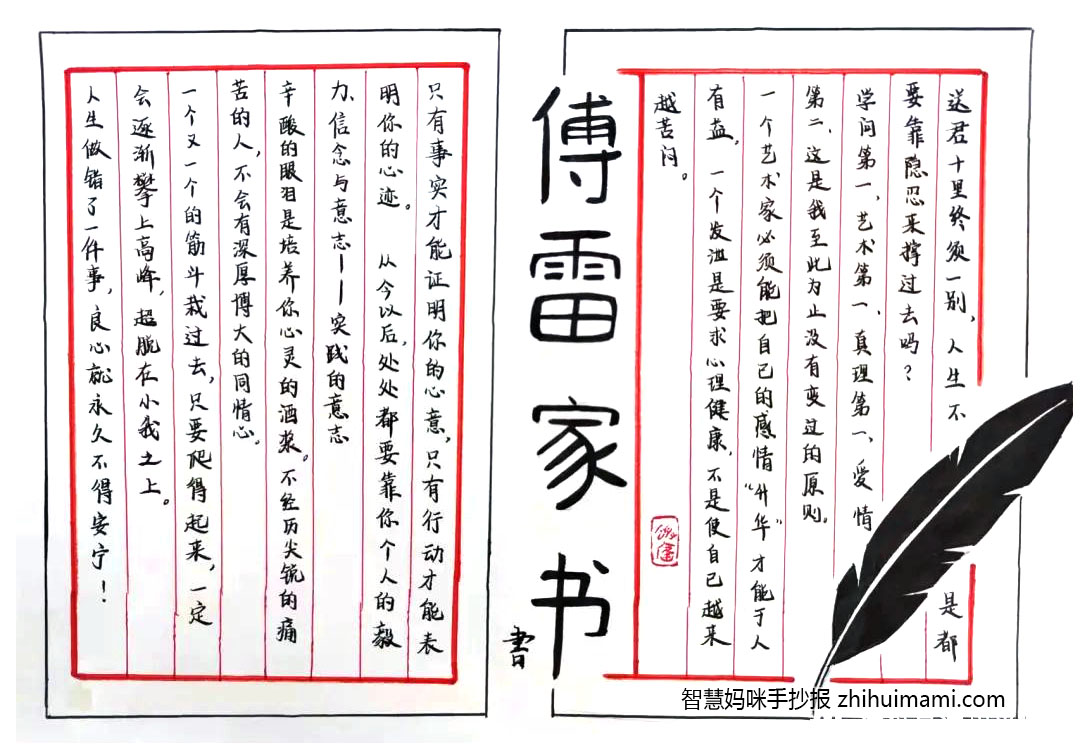 送君十里终须一别，人生不是都
要靠隐忍来撑过去吗？
学问第一、艺术第一、真理第一、爱情
第二，这是我至此为止没有变过的原则。
一个艺术家必须能把自己的感情“升华”才能于人
有益，一个发泄是要求心理健康，不是使自己越来
越苦闷。
傅雷家书
書
只有事实才能证明你的心意，只有行动才能表
明你的心迹。从今以后，处处都要靠你个人的毅
力、信念与意志——实践的意志
辛酸的眼泪是培养你心灵的酒浆。不经历尖锐的痛
苦的人，不会有深厚博大的同情心。
一个又一个的筋斗栽过去，只要爬得起来，一定
会逐渐攀上高峰，超脱在小我之上。
人生做错了一件事，良心就永久不得安宁！
智慧妈咪手抄报 zhihuimami.com